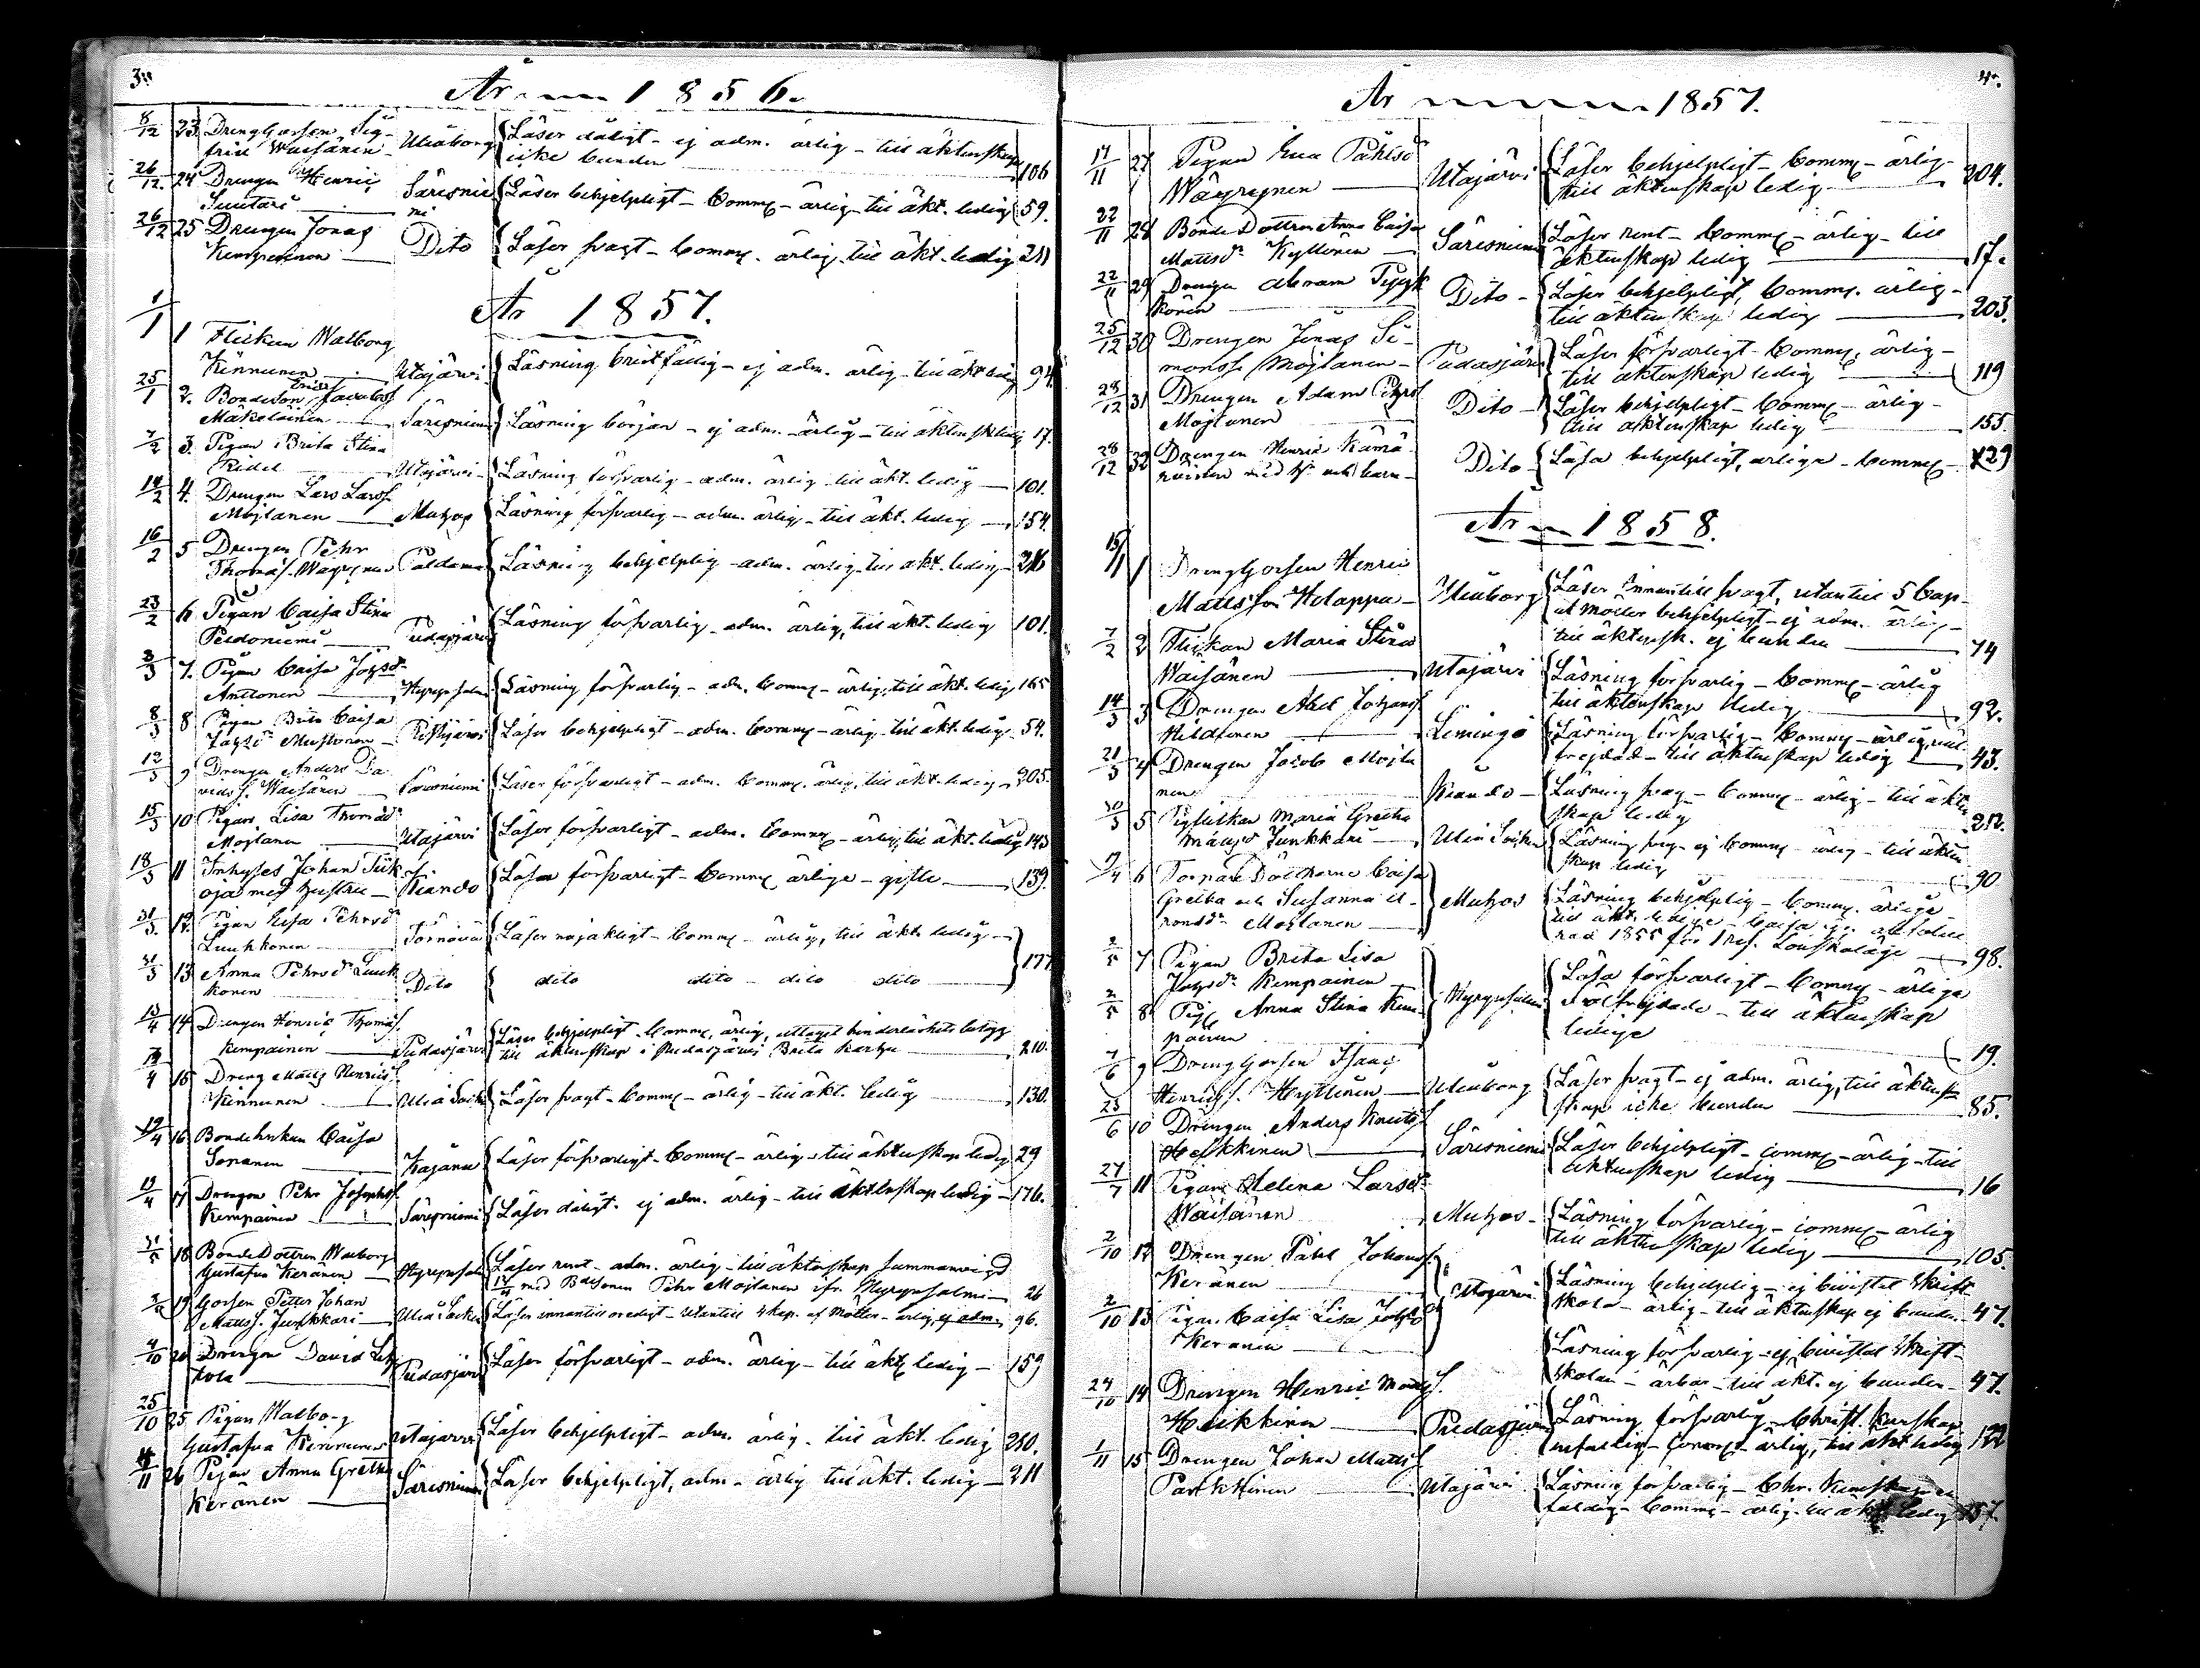 3.
År 1856.
8/12 23. Drenggossen Sig-
frid Waisänen Uleåborg Läser dåligt - ej adm. ärlig - till äktenskap
icke bunden 106
26/12. 24 Drengen Henric
Suutari Säresnie-
mi Läser behjelpligt - Comm. - ärlig - till äkt. ledig 59.
26/12 25 Drengen Jonas
Kemppainen Dito Läser svagt - Comm. ärlig till äkt. ledig 211
År 1857.
1/1 1 Flickan Walborg
Kinnunen Utajärvi Läsning bristfällig - ej adm. ärlig till äkt. ledig 94.
25/1 2. Bondeson Jacobss.
Mäkeläinen Säresniemi Läsning börjar - ej adm. - ärlig - till äktensk. ledig 17.
7/2 3. Pigan Brita Stina
Utajärvi Läsning försvarlig - adm. ärlig till äkt. ledig 101.
14/2 4. Drengen Lars Larss.
Mojlanen Muhos Läsning försvarlig - adm. ärlig - till äkt. ledig 154.
16/2 5 Drengen Pehr
Thomas. Paldamo Läsning behjelplig - adm. ärlig till äkt. ledig 216
23/2 6 Pigan Caisa Stina
Peldoniemi Pudasjärvi Läsning försvarlig - adm. ärlig, till äkt. ledig 101.
3/3 7. Pigan Caisa
Anttonen Hyrynsalmi Läsning försvarlig - adm. Comm. - ärlig, till äkt. ledig 165
8/3 8 Pigan Brita Caisa
Mustonen Ristijärvi Läser behjelpligt - adm. Comm. - ärlig till äkt. ledig 54.
12/3 9 Drengen Anders Da-
vidss. Waisänen Säresniemi Läser försvarligt - adm. Comm. ärlig, till äkt. ledig 205.
15/3 10 Pigan Lisa Thomasd.
Mojlanen Utajärvi Läser försvarligt - adm. Comm. - ärlig, till äkt. ledig 143
18/3 11 Inhyses Johan Tick-
oja med hustru Kiando Läsa försvarligt - Comm. ärliga - gifte 139.
31/3. 12. Pigan Pehrsdr
Luukkonen Läser nöjaktigt - Comm. - ärlig, till äkt. ledig
31/3 13 Anna Pehrsdr Luuk-
konen Dito dito dito dito dito 177
13/4 14 Drengen Henric Thomas.
Kempainen Pudasjärvi Läser behjelpligt. Comm. ärlig, uttaget hinderlöshets betyg
till äktenskap i Pudasjärvi Brita 210.
19/4 15 Dreng Matts Henricss.
Kinnunen Uleå Socken Läser svagt - Comm. - ärlig - till äkt. ledig 130.
19/4 16 Caisa
Kajana Läser försvarligt - Comm. - ärlig - till äktenskap ledig 29
19/4 17 Drengen Pehr Josephss.
Kempainen Säresniemi Läser dåligt. ej adm. ärlig - till äktenskap ledig 176.
31/5 18 Bonde Dottren Walborg
Gustafva Keränen Hyrynsalmi Läser rent - adm. ärlig - till äktenskap sammanvigd
med Bdesonen Pehr Mojlanen ifr. Hyrynsalmi 26
19 Gossen Petter Johan
Mattss. Junkkari Uleå Socken Läser innantill - utantill af Möller - ärlig, ej adm. 96.
4/10 20 Drengen David
Pudasjärvi Läser försvarligt - adm. ärlig - till äkt. ledig 159
25/10 25 Pigan Walborg
Gustafva Kinnunen Utajärvi Läser behjelpligt - adm. ärlig - till äkt. ledig 230.
11 26 Pigan Anna Gretha
Keränen Säresniemi Läser behjelpligt, adm - ärlig till äkt. ledig 211
4.
År 1857.
17/11 27 Pigan Eva Påhlsdr
Utajärvi Läser behjelpligt - Comm. - ärlig -
till äktenskap ledig 204.
22/11 28 Bonde Dottren Anna Caisa
Mattsdr Kyllönen Säresniemi Läser rent - Comm. - ärlig - till
äktenskap ledig 17.
22/11 29 Drengen Abram Pyyk-
könen Dito Läser behjelpligt, Comm. ärlig -
till äktenskap ledig 203.
25/12 30 Drengen Jonas Si-
monss. Mojlanen Pudasjärvi Läser försvarligt - Comm. ärlig -
till äktenskap ledig 119
28/12 31 Drengen Adam Pehrs.
Mojlanen Dito Läser behjelpligt - Comm. - ärlig -
till äktenskap ledig 155.
28/12 32 Drengen Henric Kämä-
räinen med h. och barn Dito Läsa behjelpligt, ärliga - Comm. 129
År 1858.
15/1 1 Drenggossen Henric
Mattsson Holappa Uleåborg Läser innantill svagt, utantill 5 Cap.
af Möller behjelpligt - ej adm. ärlig -
till äktensk. ej bunden 74
7/2 2 Flickan Maria Stina
Waisänen Utajärvi Läsning försvarlig - Comm. - ärlig
till äktenskap ledig 92.
14/3 3 Drengen Abel Johanss.
Hildunen Limingo Läsning försvarlig - Comm. - ärlig, väl
frejdad - till äktenskap ledig 43.
21/3 4 Drengen Jacob Mojla-
nen Kiando Läsning svag - Comm. - ärlig - till äkten-
skap ledig 212.
30/3 5 Pigflickan Maria Gretha
Månsd. Junkkari Uleå Socken Läsning svag - ej Comm. - ärlig - till äkten-
skap ledig 90
9/4 6 Torpare Döttrarne Caisa
Gretha och Susanna A-
ronsdr Mojlanen Muhos Läsning behjelplig - Comm. ärliga
till äkt. lediga - Caisa är absolve-
rad 1855 för 1 res. Lönskaläge 98.
2/5 7 Pigan Brita Lisa
Kempainen Hyrynsalmi Läsa försvarligt - Comm. - ärliga
välfrejdade - till äktenskap
lediga 19.
2/5 8 Pig. Anna Stina Kem-
painen
7/6 9 Drenggossen Isaac
Henricss. Hyttinen Uleåborg Läser svagt - ej adm. ärlig, till äkten-
skap icke bunden 85.
23/6 10 Drengen Anders Knuts.
Heikkinen Säresniemi Läser behjelpligt - comm. - ärlig - till
äktenskap ledig 16
27/7 11 Pigan Helena Larsd.
Waisänen Muhos Läsning försvarlig - comm. - ärlig
till äktenskap ledig 105.
2/10 12 Drengen Påhl Johanss.
Keränen Utajärvi Läsning behjelplig - ej bivistat Skrift-
skola - ärlig - till äktenskap ej bunden 47.
2/10 13 Pigan Caisa Lisa
Keränen Läsning försvarlig - ej bivistat Skrift-
skolan - ärbar - till äkt. ej bunden 47.
24/10 14 Drengen Henric
Heikkinen Pudasjärvi Läsning försvarlig - Christ. kunskap
enfaldig - Comm. - ärlig, till äkt. ledig 122
1/11 15 Drengen Johan Mattss.
Parkkinen Utajärvi Läsning försvarlig - Chr. Kunskap en-
faldig - Comm. - ärlig till äkt. ledig 157.